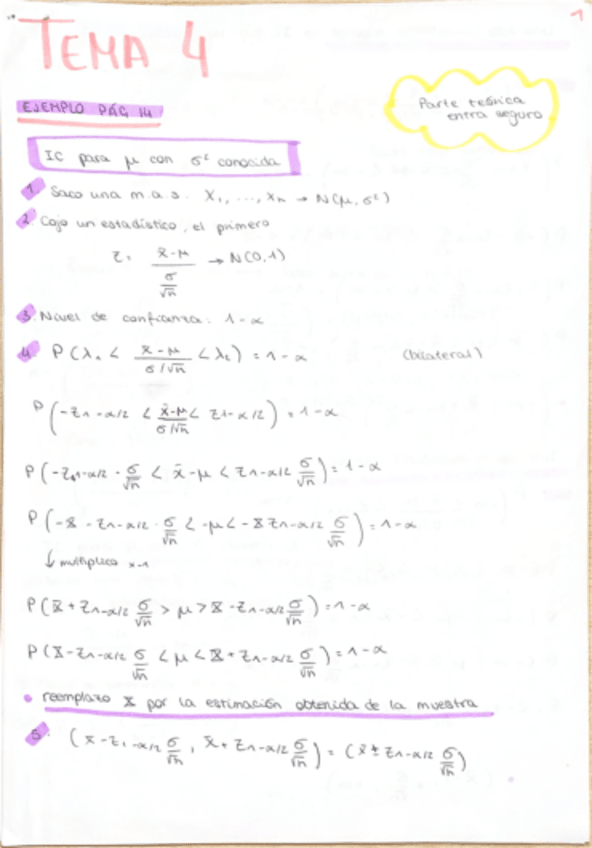 1
TEMA 4
EJEMPLO PÁG 14
Parte teórica
entra seguro
IC para μ con σ² conocida
1. Saco una m.a.s. X₁, ..., Xn → N(μ, σ²)
2. Cojo un estadístico, el primero
Z = (x̄ - μ) / (σ/√n) → N(0,1)
3. Nivel de confianza: 1-α
4. P(λ₁ < (x̄ - μ)/(σ/√n) < λ₂) = 1-α (bilateral)
P(-Z1-α/2 < (x̄-μ)/(σ/√n) < Z1-α/2) = 1-α
P(-Z1-α/2 · σ/√n < x̄-μ < Z1-α/2 σ/√n) = 1-α
P(-x̄ - Z1-α/2 · σ/√n < -μ < -x̄ Z1-α/2 σ/√n) = 1-α
↓ multiplico x-1
P(x̄ + Z1-α/2 σ/√n > μ > x̄ - Z1-α/2 σ/√n) = 1-α
P(x̄ - Z1-α/2 σ/√n < μ < x̄ + Z1-α/2 σ/√n) = 1-α
• reemplazo x̄ por la estimación obtenida de la muestra
5. (x̄ - Z1-α/2 σ/√n , x̄ + Z1-α/2 σ/√n) = (x̄ ± Z1-α/2 σ/√n)